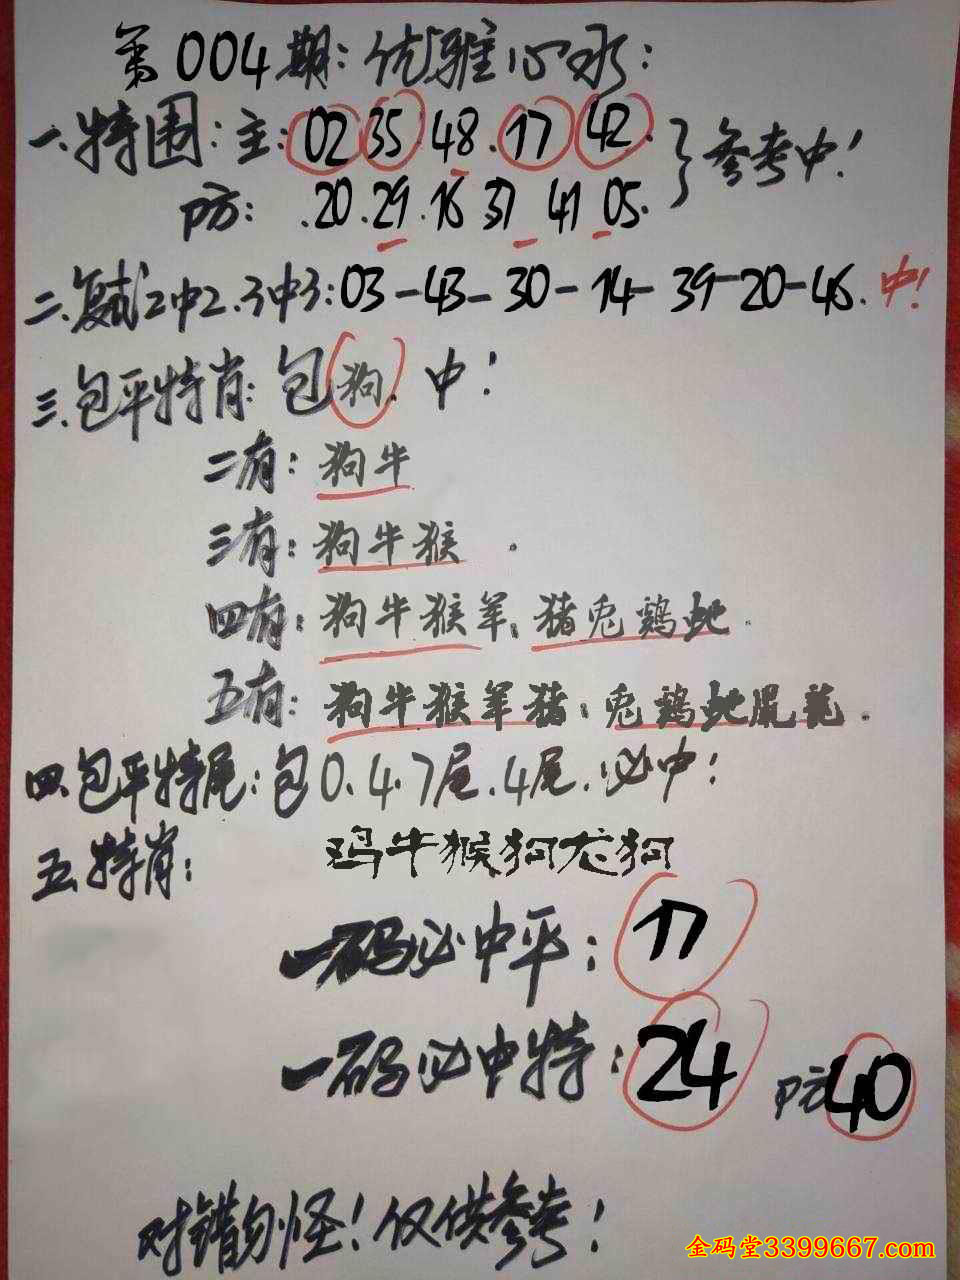 第004期:优雅心水:
一.特围:主:02 35.48.17 42.
防:.20.29.16 37 41 05.
}参考中!
二.复式2中2.3中3:03-43-30-14-39-20-46.中!
三.包平特肖:包狗.中!
二有:狗牛
三有:狗牛猴.
四有:狗牛猴羊;猪兔鸡蛇.
五有:狗牛猴羊猪;兔鸡蛇鼠龙.
四.包平特尾:包0.4.7尾.4尾.必中!
五.特肖:鸡牛猴狗龙狗
一码必中平:17
一码必中特:24 防40
对错勿怪!仅供参考!
金码堂3399667.com